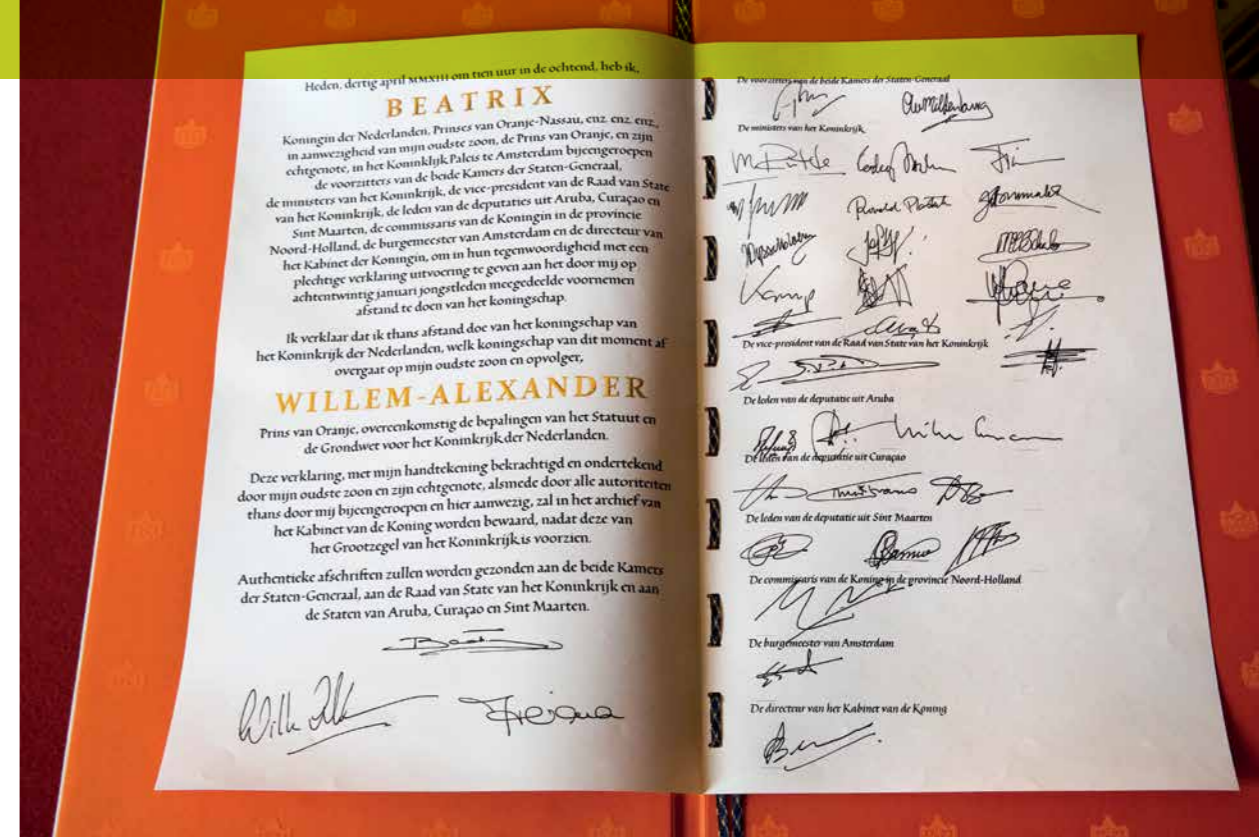 Heden, dertig april MMXIII om tien uur in de ochtend, heb ik,
BEATRIX
Koningin der Nederlanden, Prinses van Oranje-Nassau, enz. enz. enz.,
in aanwezigheid van mijn oudste zoon, de Prins van Oranje, en zijn
echtgenote, in het Koninklijk Paleis te Amsterdam bijeengeroepen
de voorzitters van de beide Kamers der Staten-Generaal,
de ministers van het Koninkrijk, de vice-president van de Raad van State
van het Koninkrijk, de leden van de deputaties uit Aruba, Curaçao en
Sint Maarten, de commissaris van de Koningin in de provincie
Noord-Holland, de burgemeester van Amsterdam en de directeur van
het Kabinet der Koningin, om in hun tegenwoordigheid met een
plechtige verklaring uitvoering te geven aan het door mij op
achtentwintig januari jongstleden meegedeelde voornemen
afstand te doen van het koningschap.
Ik verklaar dat ik thans afstand doe van het koningschap van
het Koninkrijk der Nederlanden, welk koningschap van dit moment af
overgaat op mijn oudste zoon en opvolger,
WILLEM-ALEXANDER
Prins van Oranje, overeenkomstig de bepalingen van het Statuut en
de Grondwet voor het Koninkrijk der Nederlanden.
Deze verklaring, met mijn handtekening bekrachtigd en ondertekend
door mijn oudste zoon en zijn echtgenote, alsmede door alle autoriteiten
thans door mij bijeengeroepen en hier aanwezig, zal in het archief van
het Kabinet van de Koning worden bewaard, nadat deze van
het Grootzegel van het Koninkrijk is voorzien.
Authentieke afschriften zullen worden gezonden aan de beide Kamers
der Staten-Generaal, aan de Raad van State van het Koninkrijk en aan
de Staten van Aruba, Curaçao en Sint Maarten.
De voorzitters van de beide Kamers der Staten-Generaal
De ministers van het Koninkrijk
M Rutte
Ronald Plasterk
Kamp
De vice-president van de Raad van State van het Koninkrijk
De leden van de deputatie uit Aruba
De leden van de deputatie uit Curaçao
De leden van de deputatie uit Sint Maarten
De commissaris van de Koning in de provincie Noord-Holland
De burgemeester van Amsterdam
De directeur van het Kabinet van de Koning